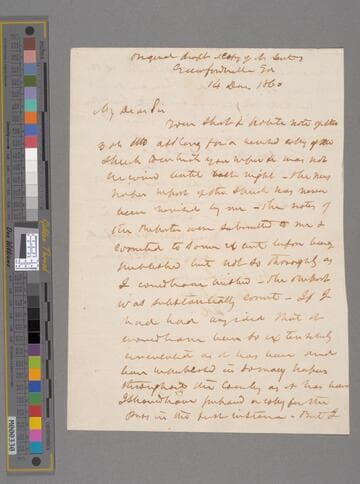 Original draft & Copy of A. Lincoln
Crawfordville Ga
14 Dec 1860
My Dear Sir
Your short & polite note of the
30th Ulto asking for a revised copy of the
speech to which you refer was not
received until last night - The news
paper report of the speech has never
been revised by me - The notes of
the Reporter were submitted to me &
corrected to some extent before being
published but not so thoroughly as
I could have wished - The report
was substantially correct - If I
had had any idea that it
would have been so extensively
circulated as it has been and
been published in so many papers
throughout the Country as it has been
I should have prepared a copy for the
press in the first instance - But I